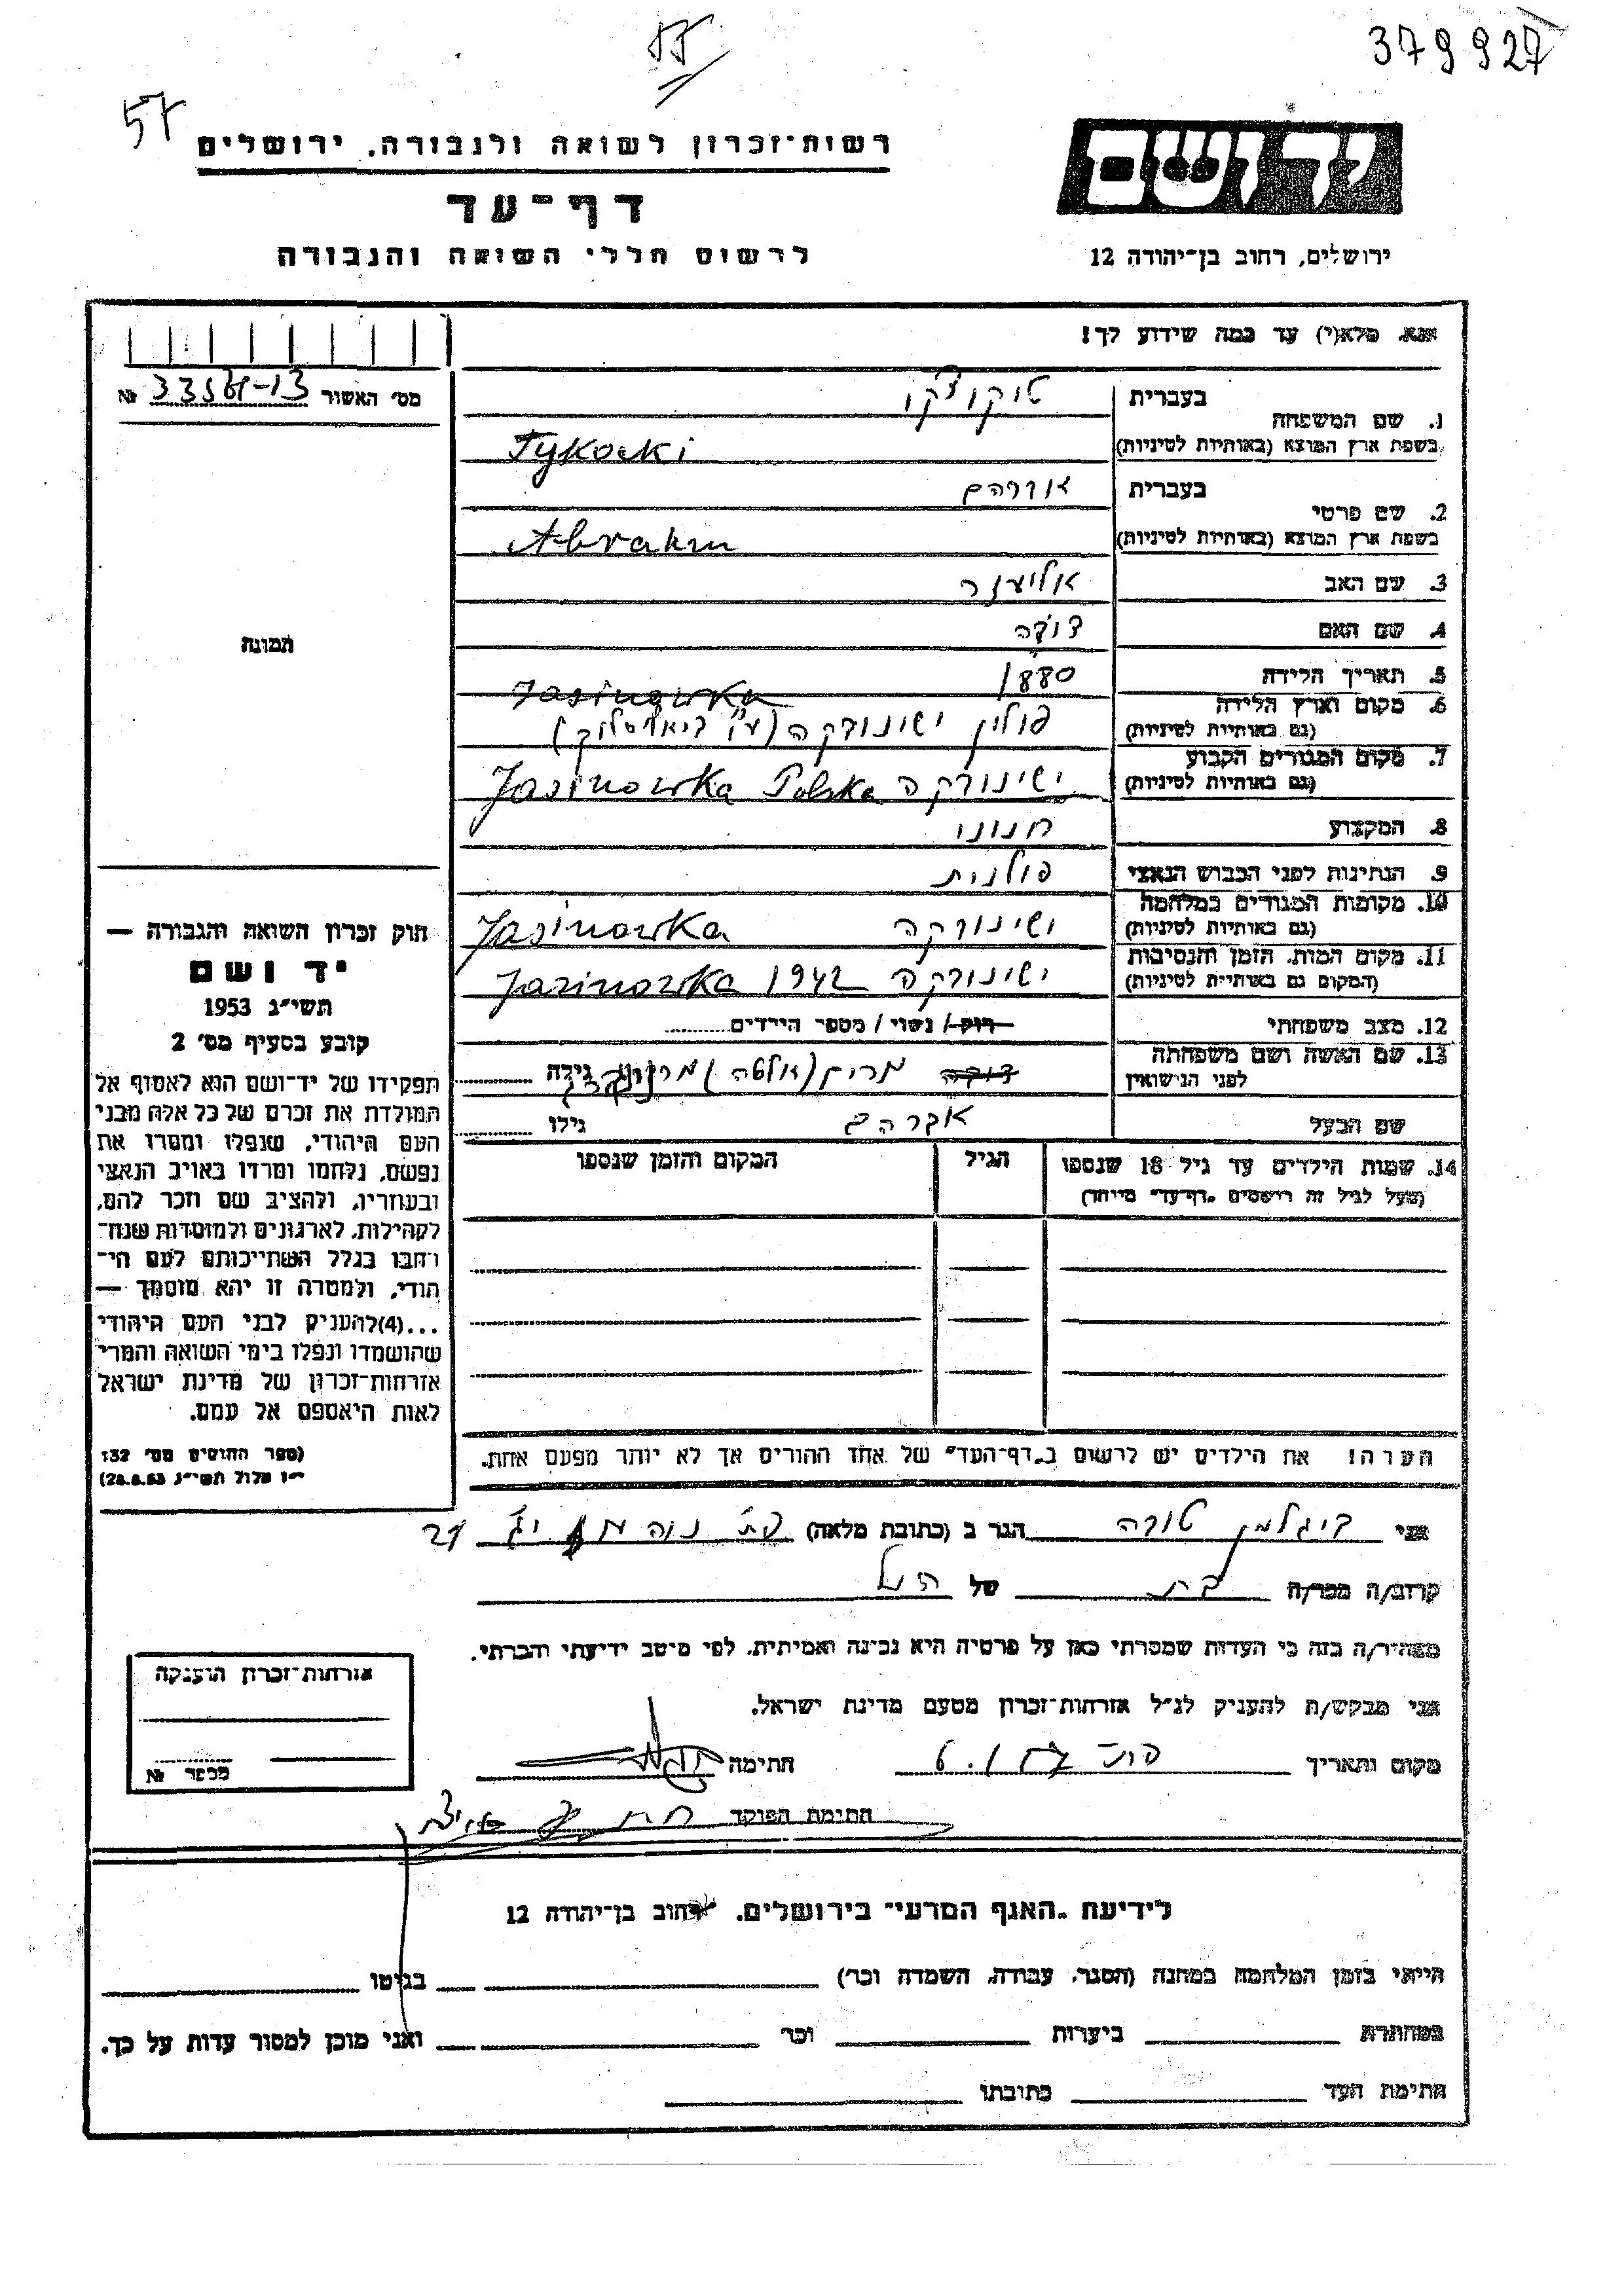 379927
57
רשות-זכרון לשואה ולגבורה, ירושלים
יד ושם
דף-עד
לרשום חללי השואה והגבורה
ירושלים, רחוב בן-יהודה 12
אנא, מלא(י) עד כמה שידוע לך!
מס' האשור №
1. שם המשפחה
בעברית טיקוצקי
בשפת ארץ המוצא (באותיות לטיניות) Tykocki
2. שם פרטי
בעברית אברהם
בשפת ארץ המוצא (באותיות לטיניות) Abrahm
3. שם האב אליעזר
4. שם האם
5. תאריך הלידה 1880
Jasinowka
6. מקום וארץ הלידה (גם באותיות לטיניות) פולין ישינובקה (ע"י ביאליסטוק)
7. מקום המגורים הקבוע (גם באותיות לטיניות) ישינובקה Jasinowka Polska
8. המקצוע חנוני
9. הנתינות לפני הכבוש הנאצי פולנית
10. מקומות המגורים במלחמה (גם באותיות לטיניות) ישינובקה Jasinowka
11. מקום המות, הזמן והנסיבות (המקום גם באותיות לטיניות) ישינובקה 1942 Jasinowka
12. מצב משפחתי רוק / נשוי / מספר הילדים
13. שם האשה ושם משפחתה לפני הנישואין מרים (אלטה) גילה
שם הבעל אברהם גילו
14. שמות הילדים עד גיל 18 שנספו
(מעל לגיל זה רושמים "דף-עד" מיוחד)
הגיל
המקום והזמן שנספו
הערה! את הילדים יש לרשום ב"דף-העד" של אחד ההורים אך לא יותר מפעם אחת.
תמונה
חוק זכרון השואה והגבורה —
יד ושם
תשי"ג 1953
קובע בסעיף מס' 2
תפקידו של יד-ושם הוא לאסוף אל
המולדת את זכרם של כל אלה מבני
העם היהודי, שנפלו ומסרו את
נפשם, נלחמו ומרדו באויב הנאצי
ובעוזריו, ולהציב שם וזכר להם,
לקהילות, לארגונים ולמוסדות שנח-
רבו בגלל השתייכותם לעם הי-
הודי, ולמטרה זו יהא מוסמך —
...(4) להעניק לבני העם היהודי
שהושמדו ונפלו בימי השואה והמרי
אזרחות-זכרון של מדינת ישראל
לאות היאספם אל עמם.
(ספר החוקים מס' 132
י"ז אלול תשי"ג 28.8.53)
אני ביגלמן טובה הגר ב (כתובת מלאה) פ"ת 21
קרוב/ה מכר/ה בת של הנ"ל
מצהיר/ה בזה כי העדות שמסרתי כאן על פרטיה היא נכונה ואמיתית, לפי מיטב ידיעתי והכרתי.
אני מבקש/ת להעניק לנ"ל אזרחות-זכרון מטעם מדינת ישראל.
מקום ותאריך פ"ת חתימה
חתימת הפוקד
אזרחות-זכרון הוענקה
מספר №
לידיעת "האגף המדעי" בירושלים, רחוב בן-יהודה 12
הייתי בזמן המלחמה במחנה (הסגר, עבודה, השמדה וכו') בגיטו
במחתרת ביערות וכו' ואני מוכן למסור עדות על כך.
חתימת העד כתובתו